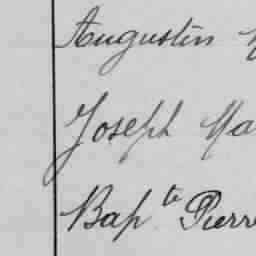 Augustin
Joseph Ma
Bap te Pierr